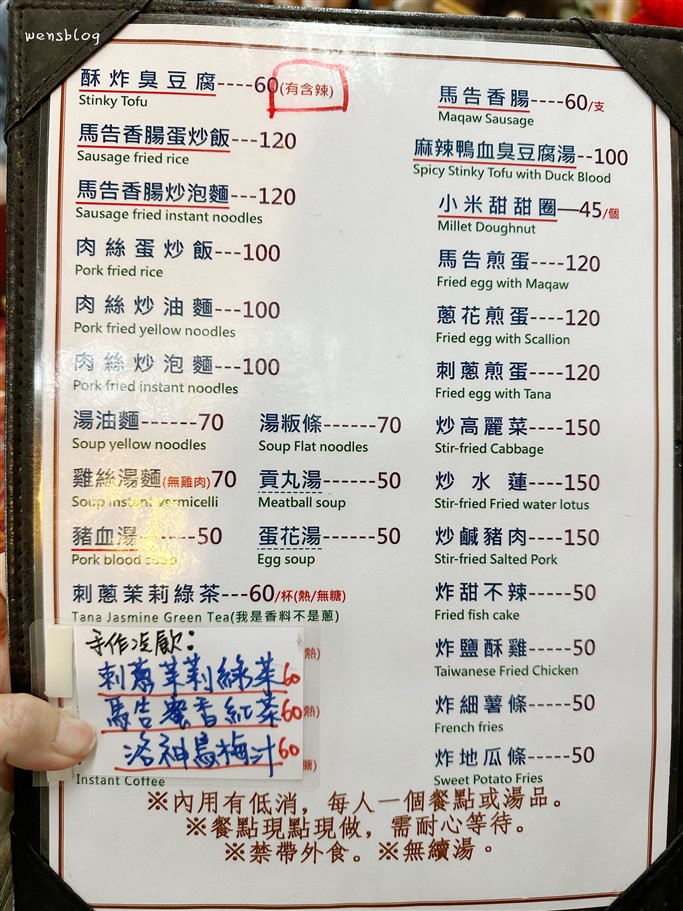 wensblog
酥炸臭豆腐----60(有含辣)
Stinky Tofu
馬告香腸蛋炒飯---120
Sausage fried rice
馬告香腸炒泡麵---120
Sausage fried instant noodles
肉絲蛋炒飯---100
Pork fried rice
肉絲炒油麵---100
Pork fried yellow noodles
肉絲炒泡麵---100
Pork fried instant noodles
湯油麵------70
Soup yellow noodles
湯粄條------70
Soup Flat noodles
雞絲湯麵(無雞肉)70
Soup instant vermicelli
貢丸湯------50
Meatball soup
豬血湯------50
Pork blood soup
蛋花湯------50
Egg soup
刺蔥茉莉綠茶---60/杯(熱/無糖)
Tana Jasmine Green Tea(我是香料不是蔥)
手作冷飲:
刺蔥茉莉綠茶60
馬告蜜香紅茶60
洛神烏梅汁60
熱)
熱)
糖)
Instant Coffee
馬告香腸----60/支
Maqaw Sausage
麻辣鴨血臭豆腐湯--100
Spicy Stinky Tofu with Duck Blood
小米甜甜圈—45/個
Millet Doughnut
馬告煎蛋----120
Fried egg with Maqaw
蔥花煎蛋----120
Fried egg with Scallion
刺蔥煎蛋----120
Fried egg with Tana
炒高麗菜----150
Stir-fried Cabbage
炒水蓮----150
Stir-fried Fried water lotus
炒鹹豬肉----150
Stir-fried Salted Pork
炸甜不辣-----50
Fried fish cake
炸鹽酥雞-----50
Taiwanese Fried Chicken
炸細薯條-----50
French fries
炸地瓜條-----50
Sweet Potato Fries
※內用有低消，每人一個餐點或湯品。
※餐點現點現做，需耐心等待。
※禁帶外食。※無續湯。